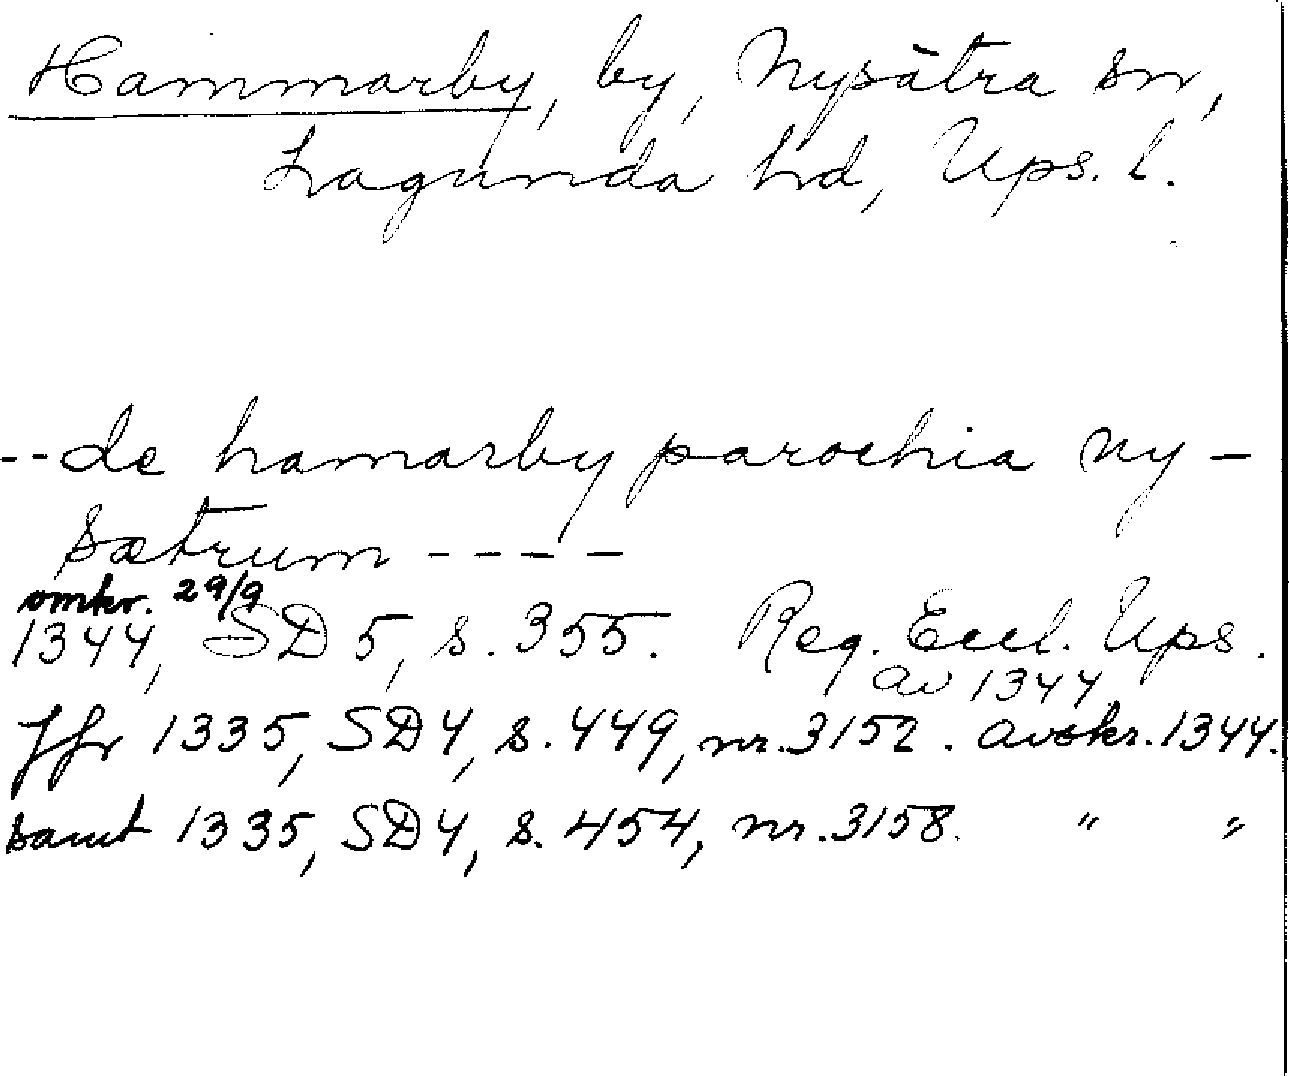 Hammarby, by, Nysätra sn,
Lagunda hd, Ups. l.
--de hamarby parochia ny-
sætrum ----
omkr. 29/9
1344, SD 5, s. 355. Reg. Eccl. Ups.
av 1344
Jfr 1335, SD4, s. 449, nr. 3152. avskr. 1344.
samt 1335, SD4, s. 454, nr. 3158. " "